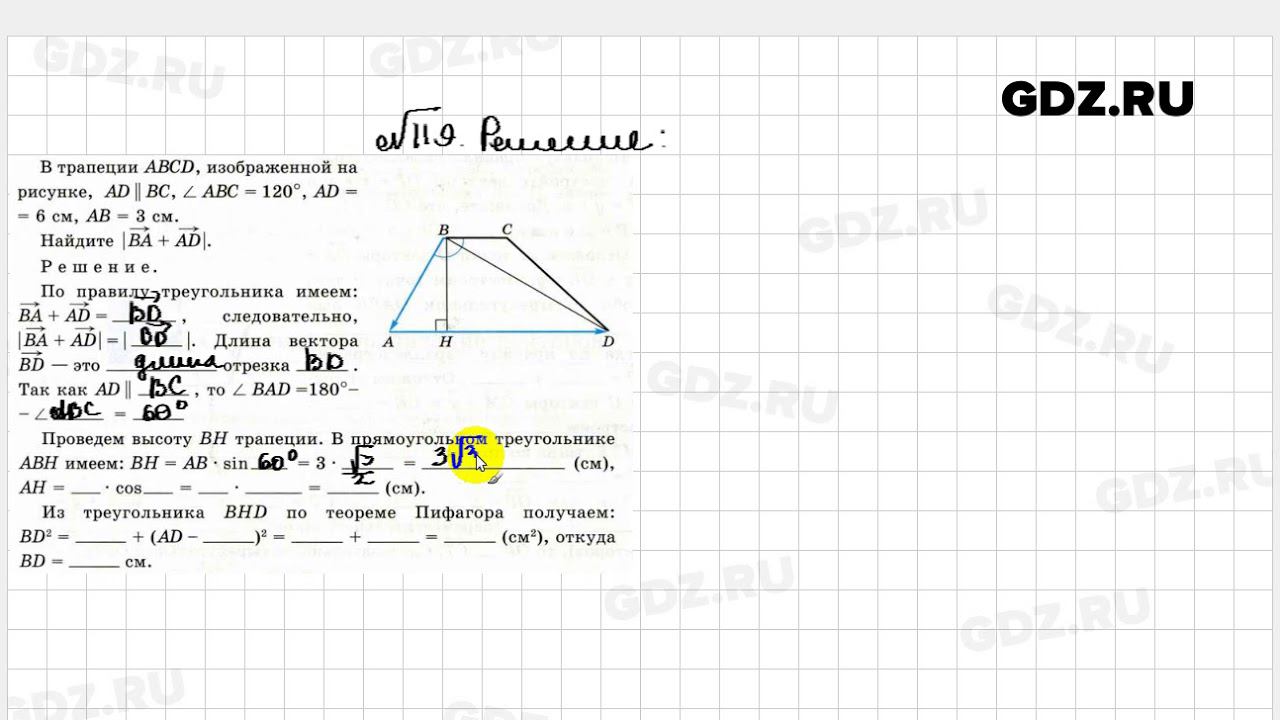 GDZ.RU
GDZ.RU
GDZ.RU
№119. Решение:
В трапеции ABCD, изображенной на
рисунке, AD ∥ BC, ∠ ABC = 120°, AD =
= 6 см, AB = 3 см.
Найдите |BA + AD|.
Решение.
По правилу треугольника имеем:
BA + AD = BD , следовательно,
|BA + AD| = | BD |. Длина вектора
BD — это длина отрезка BD .
Так как AD ∥ BC , то ∠ BAD =180°–
– ∠ ABC = 60°
Проведем высоту BH трапеции. В прямоугольном треугольнике
ABH имеем: BH = AB · sin 60° = 3 · √3/2 = 3√3 (см),
AH = ___ · cos___ = ___ · ______ = _____ (см).
Из треугольника BHD по теореме Пифагора получаем:
BD² = _____ + (AD – _____)² = _____ + _____ = _____ (см²), откуда
BD = _____ см.
B C
A H D
GDZ.RU
GDZ.RU
GDZ.RU
GDZ.RU
GDZ.RU
GDZ.RU
GDZ.RU
GDZ.RU